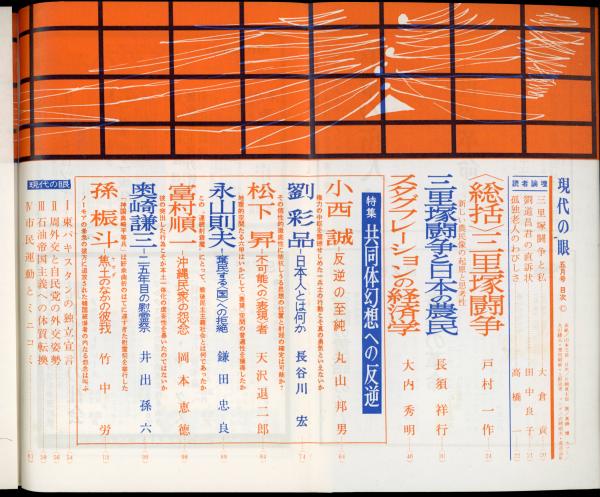 現代の眼 五月号 目次
読者論壇
三里塚闘争と私 大倉貞
劉道昌君の直訴状 田中良子
孤独老人のわびしさ 高橋一
〈総括〉三里塚闘争 戸村一作
新しい農民像の起原と思考性
三里塚闘争と日本の農民 長須祥行
スタグフレーションの経済学 大内秀明
特集 共同体幻想への反逆
小西誠 反逆の至純 丸山邦男
劉彩品 日本人とは何か 長谷川宏
松下昇 不可能への表現者 天沢退二郎
永山則夫 棄民する〈国〉への拒絶 鎌田忠良
この「連続射殺魔」にとって、戦後民主主義社会とは何であったか
富村順一 沖縄民衆の怨念 岡本恵徳
奥崎謙三 二五年目の慰霊祭 井出孫六
孫振斗 焦土のなかの彼我 竹中労
現代の眼
Ⅰ 東パキスタンの独立宣言
Ⅱ 周外交と自民党の外交姿勢
Ⅲ 石油帝国主義への体質転換
Ⅳ 市民運動とミニコミ